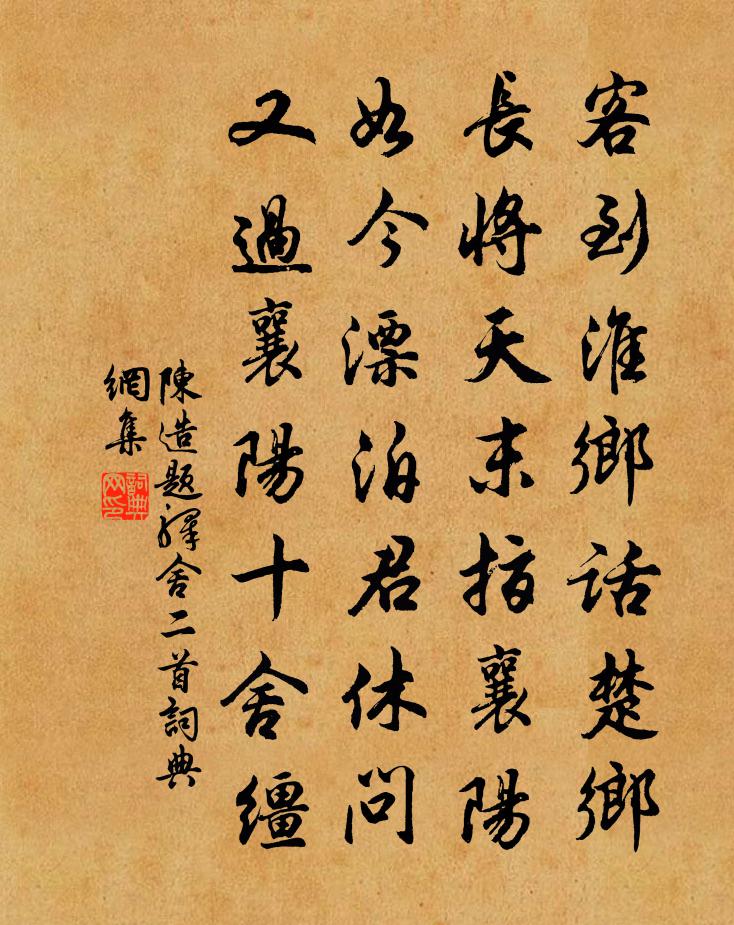 客到淮鄉話楚鄉
長將天末指襄陽
如今漂泊君休問
又過襄陽十舍繮
陳造題驛舍二首詞典
網集
詞典
网印